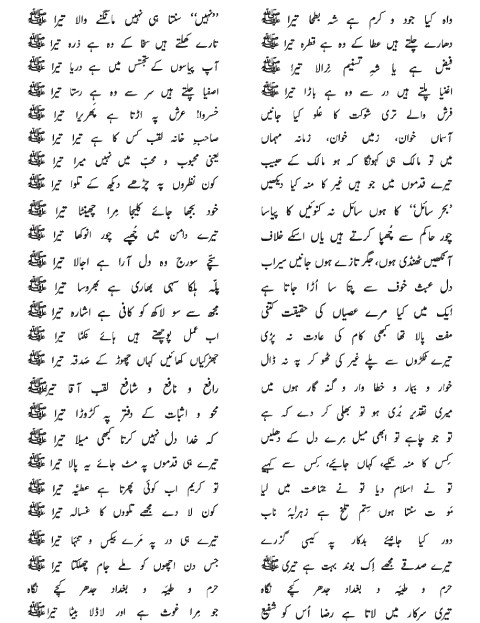 واہ کیا جود و کرم ہے شہِ بطحا تیرا ﷺ ’’نہیں‘‘ سنتا ہی نہیں مانگنے والا تیرا ﷺ
دھارے چلتے ہیں عطا کے وہ ہے قطرہ تیرا ﷺ تارے کھلتے ہیں سخا کے وہ ہے ذرہ تیرا ﷺ
فیض ہے یا شہِ تسنیم نرالا تیرا ﷺ آپ پیاسوں کے تجسّس میں ہے دریا تیرا ﷺ
اغنیا پلتے ہیں در سے وہ ہے باڑا تیرا ﷺ اصفیا چلتے ہیں سر سے وہ ہے رستا تیرا ﷺ
فرش والے تری شوکت کا عُلو کیا جانیں خسروا! عرش پہ اڑتا ہے پھریرا تیرا ﷺ
آسماں خوان، زمیں خوان، زمانہ مہماں صاحبِ خانہ لقب کس کا ہے تیرا تیرا ﷺ
میں تو مالک ہی کہونگا کہ ہو مالک کے حبیب یعنی محبوب و محب میں نہیں میرا تیرا ﷺ
تیرے قدموں میں جو ہیں غیر کا منہ کیا دیکھیں کون نظروں پہ چڑھے دیکھ کے تلوا تیرا ﷺ
’’بحرِ سائل‘‘ کا ہوں سائل نہ کنوئیں کا پیاسا خود بجھا جائے کلیجا مِرا چھینٹا تیرا ﷺ
چور حاکم سے چھپا کرتے ہیں یاں اسکے خلاف تیرے دامن میں چُھپے چور انوکھا تیرا ﷺ
آنکھیں ٹھنڈی ہوں، جگر تازے ہوں جانیں سیراب سچّے سورج وہ دل آرا ہے اجالا تیرا ﷺ
دل عبث خوف سے پتا سا اُڑا جاتا ہے پلّہ ہلکا سہی بھاری ہے بھروسا تیرا ﷺ
ایک میں کیا مرے عصیاں کی حقیقت کتنی مجھ سے سو لاکھ کو کافی ہے اشارہ تیرا ﷺ
مفت پالا تھا کبھی کام کی عادت نہ پڑی اب عمل پوچھتے ہیں ہائے نکمّا تیرا ﷺ
تیرے ٹکڑوں سے پلے غیر کی ٹھوکر پہ نہ ڈال جھڑکیاں کھائیں کہاں چھوڑ کے صدقہ تیرا ﷺ
خوار و بیمار و خطا وار و گنہ گار ہوں میں رافع و نافع و شافع لقب آقا تیرا ﷺ
میری تقدیر بُری ہو تو بھلی کر دے کہ ہے محو و اثبات کے دفتر پہ کڑوڑا تیرا ﷺ
تو جو چاہے تو ابھی میل مرے دل کے دھلیں کہ خدا دل نہیں کرتا کبھی میلا تیرا ﷺ
کِس کا منہ تکیے، کہاں جائیے، کِس سے کہیے تیرے ہی قدموں پہ مٹ جائے یہ پالا تیرا ﷺ
تو نے اسلام دیا تو نے جماعت میں لیا تو کریم اب کوئی پھرتا ہے عطیّہ تیرا ﷺ
موت سنتا ہوں سِتم تلخ ہے زہرابۂ ناب کون لا دے مجھے تلووں کا غسالہ تیرا ﷺ
دور کیا جانیئے بدکار پہ کیسی گزرے تیرے ہی در پہ مَرے بیکس و تنہا تیرا ﷺ
تیرے صدقے مجھے اِک بوند بہت ہے تیری ﷺ جس دن اچھوں کو ملے جام چھلکتا تیرا ﷺ
حرم و طیبہ و بغداد جدھر کیجے نگاہ حرم و طیبہ و بغداد جدھر کیجے نگاہ
تیری سرکار میں لاتا ہے رضا اُس کو شفیع جو مرا غوث ہے اور لاڈلا بیٹا تیرا ﷺ